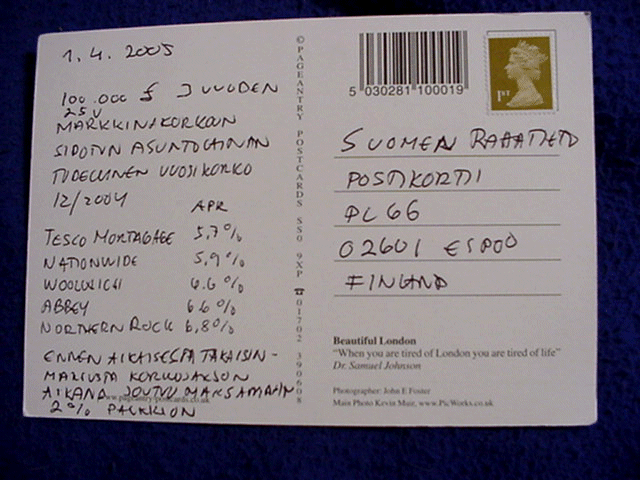 1.4. 2005
100.000 £ 3 VUODEN
25 V
MARKKINAKORKOON
SIDOTUN ASUNTOLAINAN
TODELLINEN VUOSIKORKO
12/2004
APR
TESCO MORTAGAGE 5,7%
NATIONWIDE 5,9%
WOOLWICH 6.6%
ABBEY 6.6%
NORTHERN ROCK 6,8%
ENNEN AIKAISESTA TAKAISIN-
MAKSUSTA KORKOJAKSON
AIKANA JOUTUU MAKSAMAAN
2% PALKKION
www.pageantry-postcards.co.uk
© PAGEANTRY POSTCARDS SS0 9XP ☎ 01702 390608
5 030281 100019
1ST
SUOMEN RAAATTETD
POSTIKORTTI
PL 66
02601 ESPOO
FINLAND
Beautiful London
"When you are tired of London you are tired of life"
Dr. Samuel Johnson
Photographer: John E Foster
Main Photo Kevin Muir, www.PicWorks.co.uk